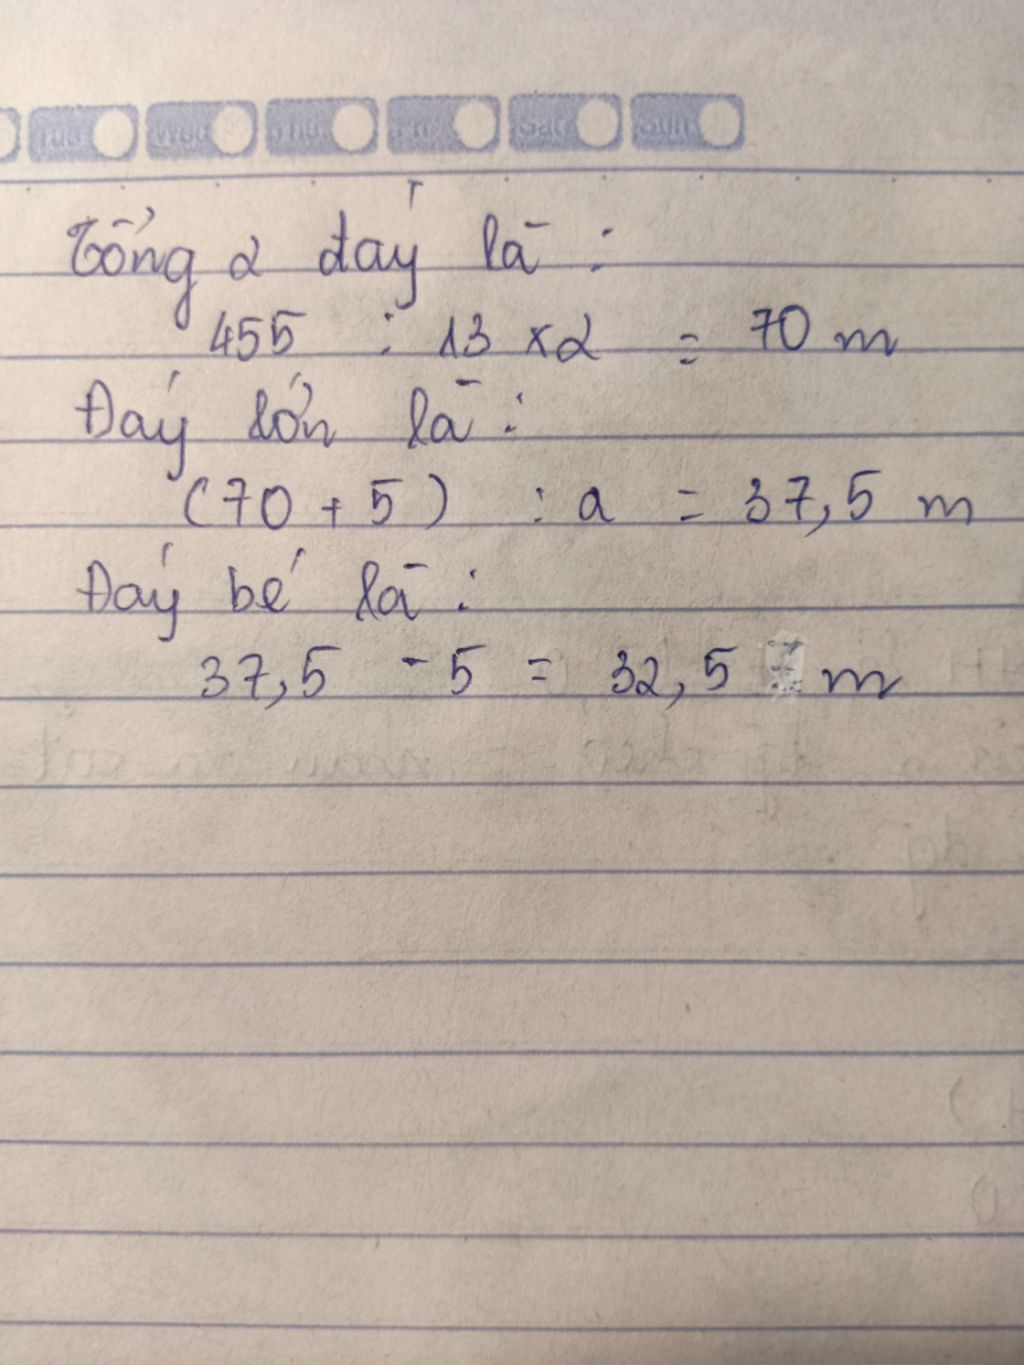 Tue Wed Thu Fri Sat Sun
Tổng 2 đáy là :
455 : 13 x 2 = 70 m
Đáy lớn là :
(70 + 5) : 2 = 37,5 m
Đáy bé là :
37,5 - 5 = 32,5 m